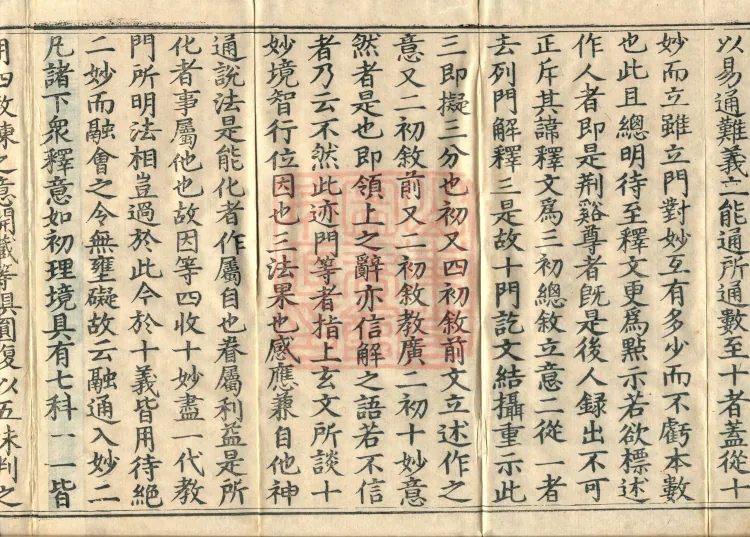 以易通難義立能通所通數至十者蓋從十
妙而立雖立門對妙互有多少而不虧本數
也此且總明待至釋文更爲點示若欲標述
作人者即是荆谿尊者旣是後人録出不可
正斥其諱釋文爲三初總敘立意二從一者
去列門解釋三是故十門訖文結攝重示此
三即擬三分也初又四初敘前文立述作之
意又二初敘前又二初敘教廣二初十妙意
然者是也即領上之辭亦信解之語若不信
者乃云不然此迹門等者指上玄文所談十
妙境智行位因也三法果也感應兼自他神
通說法是能化者作屬自也眷屬利益是所
化者事屬他也故因等四收十妙盡一代教
門所明法相豈過於此今於十義皆用待絶
二妙而融會之令無壅礙故云融通入妙二
凡諸下衆釋意如初理境具有七科一一皆
用四教揀之意開藏等俱圓復以五味判之